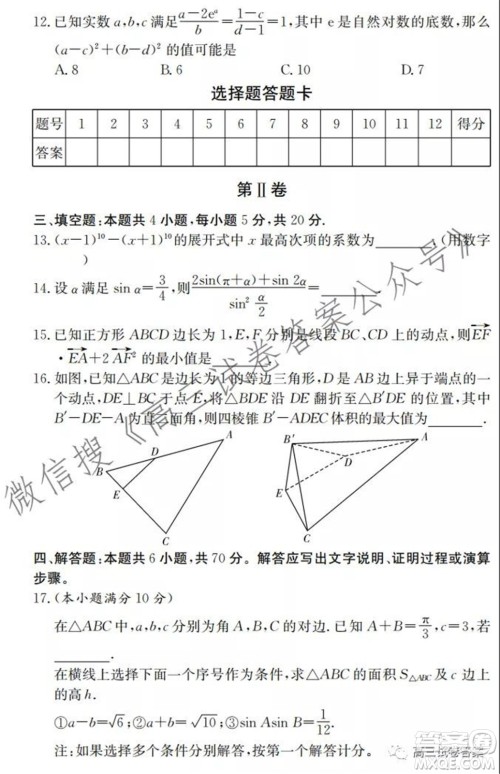 12.已知实数a,b,c满足(a-2e^a)/b=(1-c)/(d-1)=1,其中e是自然对数的底数,那么
(a-c)²+(b-d)²的值可能是
A.8 B.6 C.10 D.7
选择题答题卡
题号 1 2 3 4 5 6 7 8 9 10 11 12 得分
答案
第Ⅱ卷
三、填空题:本题共4小题,每小题5分,共20分.
13.(x-1)¹⁰-(x+1)¹⁰的展开式中x最高次项的系数为________(用数字
)
14.设α满足sin α=3/4,则(2sin(π+α)+sin 2α)/(sin² α/2)=________
15.已知正方形ABCD边长为1,E,F分别是线段BC,CD上的动点,则EF
·EA+2AF²的最小值是
16.如图,已知△ABC是边长为1的等边三角形,D是AB边上异于端点的一
个动点,DE⊥BC于点E,将△BDE沿DE翻折至△B′DE的位置,其中
B′-DE-A为直二面角,则四棱锥B′-ADEC体积的最大值为________.
A
B
D
E
C
B′
A
D
E
C
四、解答题:本题共6小题,共70分。解答应写出文字说明、证明过程或演算
步骤。
17.(本小题满分10分)
在△ABC中,a,b,c分别为角A,B,C的对边.已知A+B=π/3,c=3,若
________.
在横线上选择下面一个序号作为条件,求△ABC的面积S△ABC及c边上
的高h.
①a-b=√6;②a+b=√10;③sin Asin B=1/12.
注:如果选择多个条件分别解答,按第一个解答计分。
微信搜《高三试卷答案公众号》
高三试卷答案
MXQE.COM